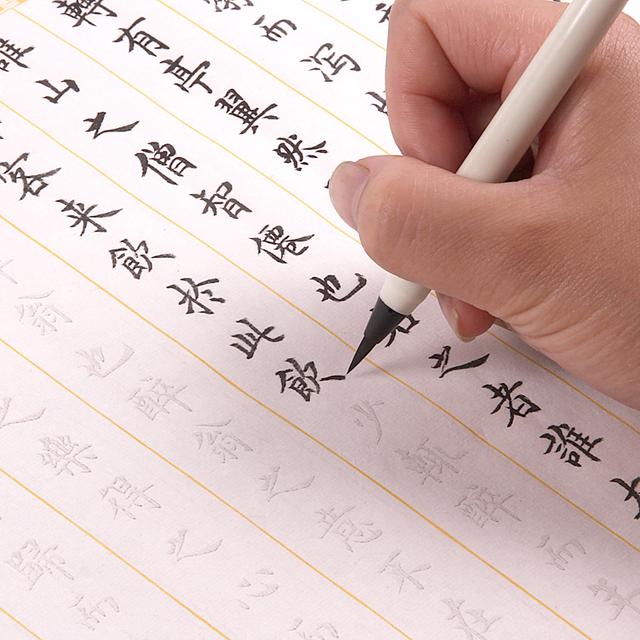 而瀉
轉有亭翼然
誰山之僧智僊也名之者誰太
客來飲於此飲少輒醉而年
翁也醉翁之意不在
之樂得之心而
歸而